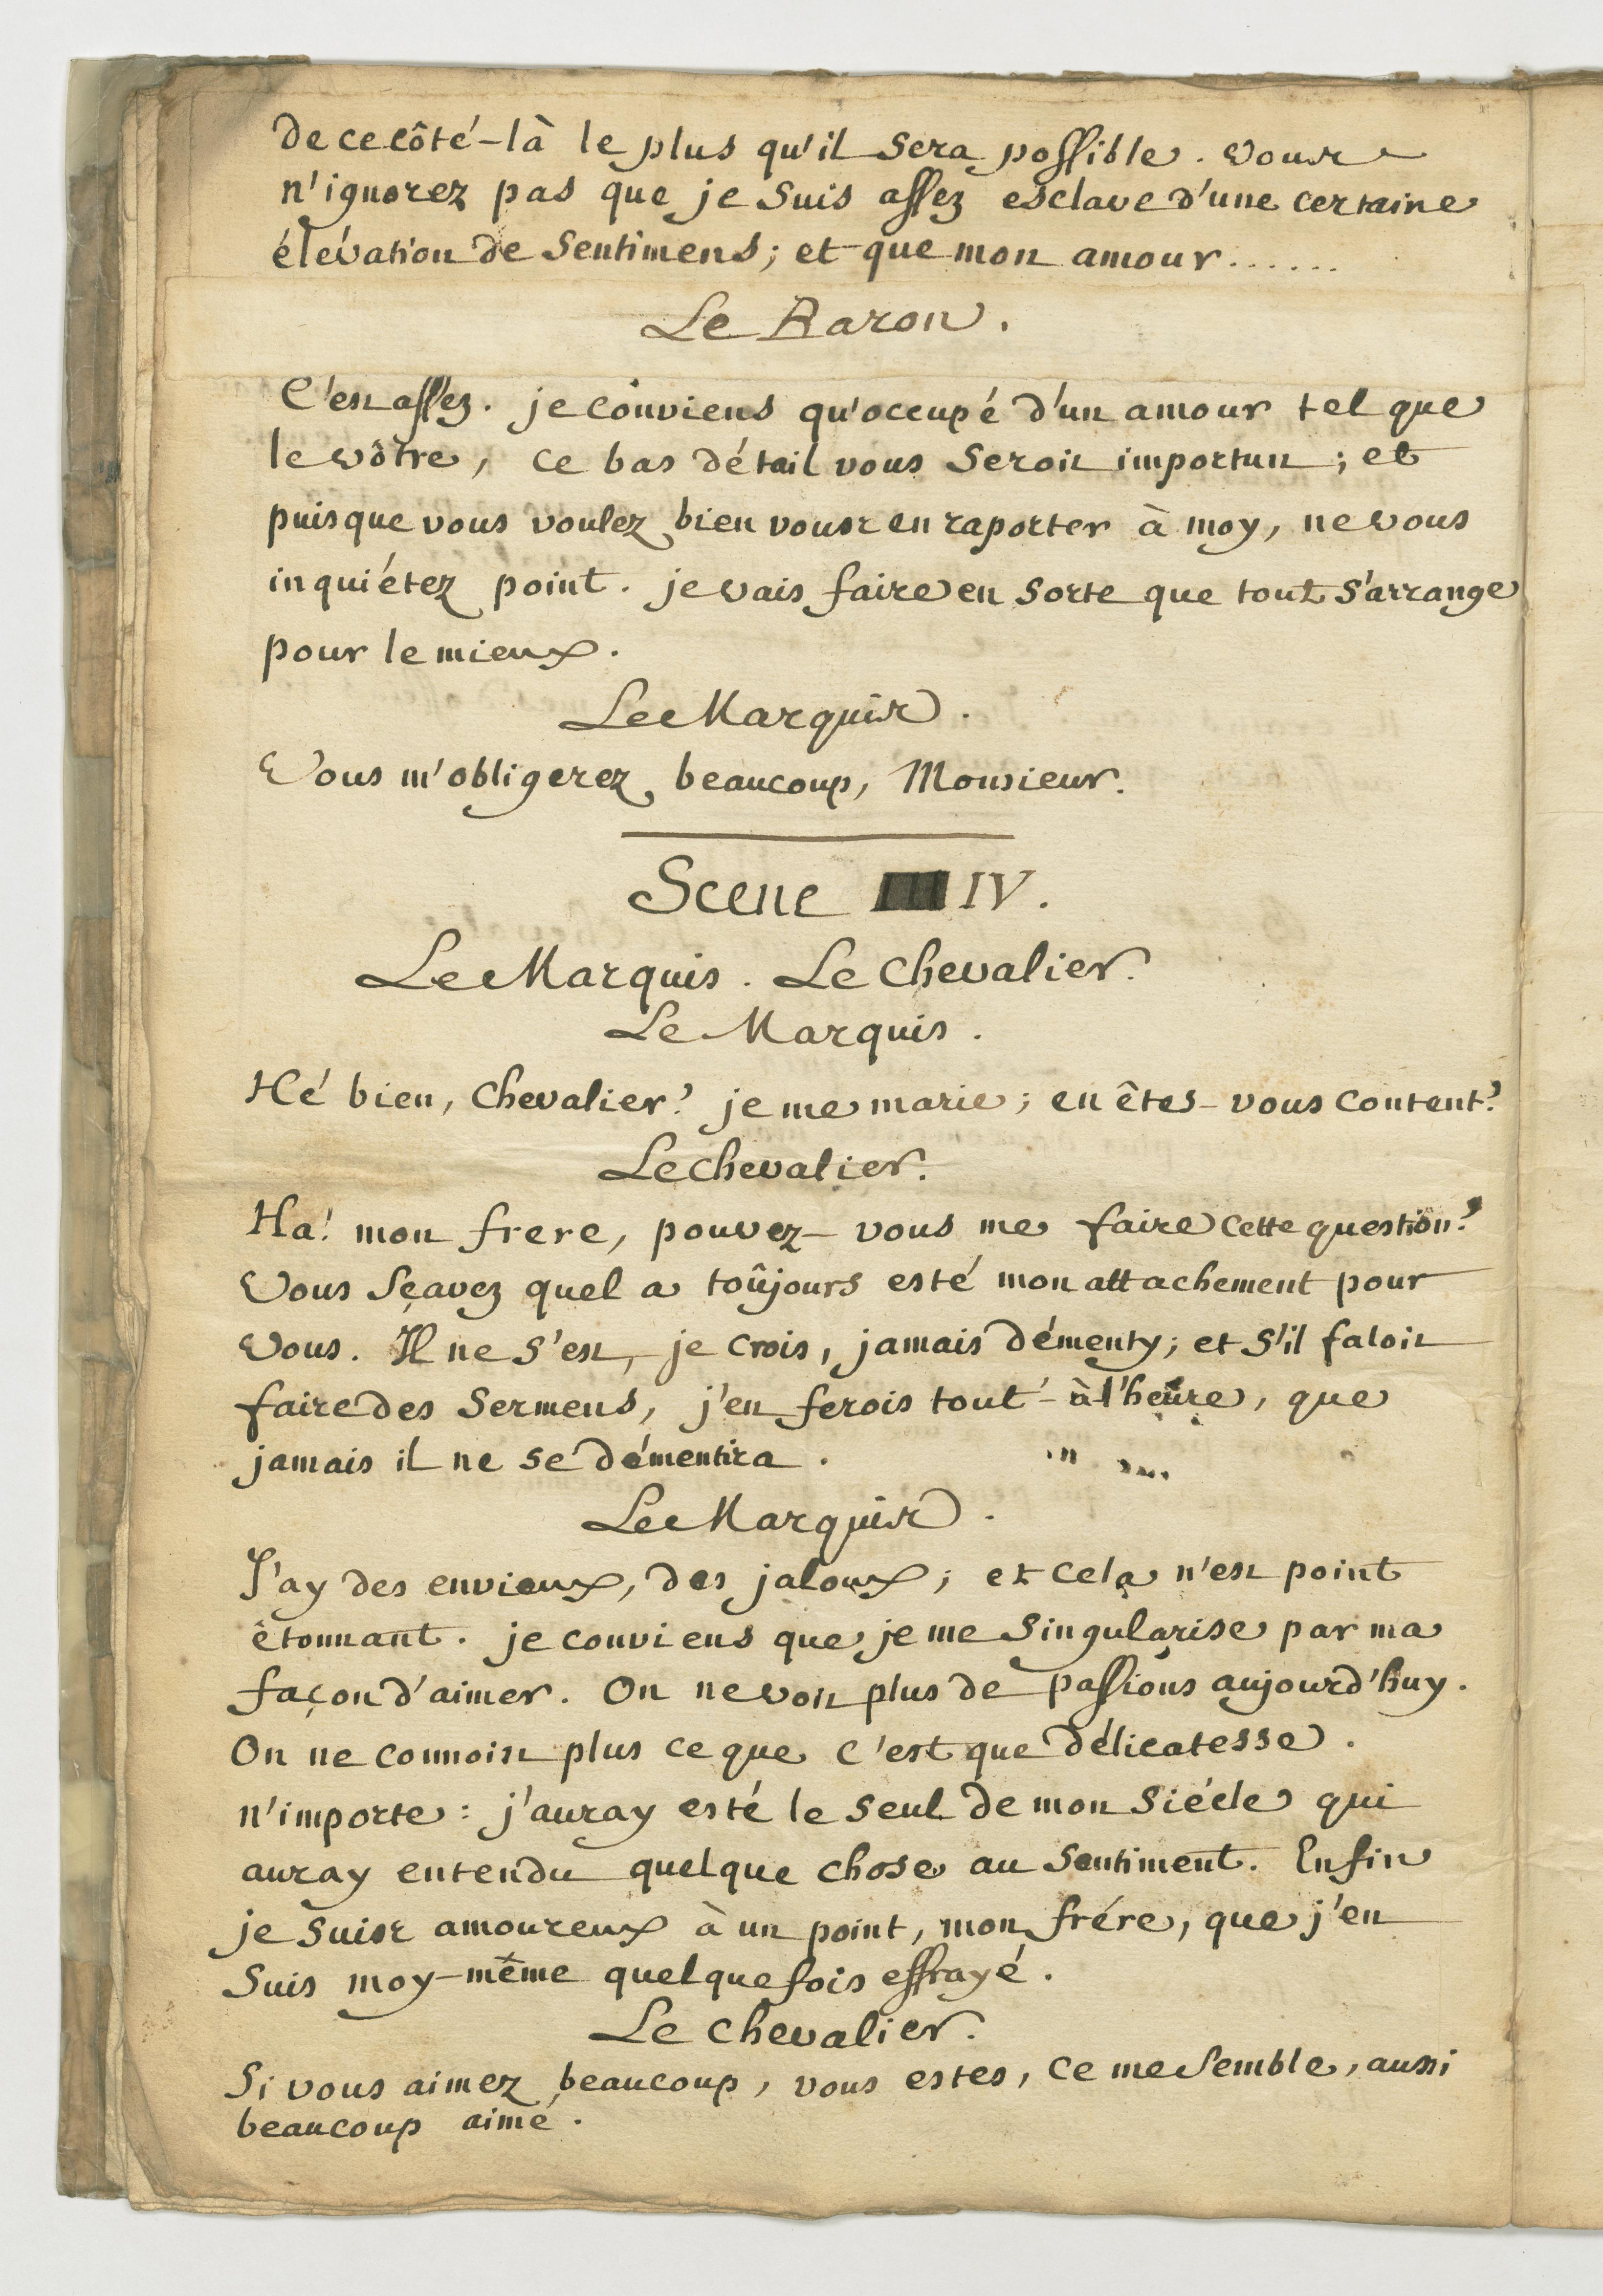 de ce côté-là le plus qu'il sera possible. vous
n'ignorez pas que je suis assez esclave d'une certaine
élévation de sentimens; et que mon amour......
Le Baron.
C'est assez. je conviens qu'occupé d'un amour tel que
le vôtre, ce bas détail vous seroit importun; et
puisque vous voulez bien vous en raporter à moy, ne vous
inquiétez point. je vais faire en sorte que tout s'arrange
pour le mieux.
Le Marquis.
Vous m'obligerez beaucoup, Monsieur.
Scene IV.
Le Marquis. Le Chevalier.
Le Marquis.
Hé bien, Chevalier? je me marie; en êtes-vous content?
Le Chevalier.
Ha! mon frere, pouvez-vous me faire cette question?
Vous sçavez quel a toûjours esté mon attachement pour
vous. Il ne s'est, je crois, jamais démenty; et s'il faloit
faire des sermens, j'en ferois tout-à-l'heûre, que
jamais il ne se démentira.
Le Marquis.
J'ay des envieux, des jaloux; et cela n'est point
étonnant. je conviens que je me singularise par ma
façon d'aimer. On ne voit plus de passions aujourd'huy.
On ne connoist plus ce que c'est que délicatesse.
n'importe: j'auray esté le seul de mon siécle qui
auray entendu quelque chose au sentiment. Enfin
je suis amoureux à un point, mon frére, que j'en
suis moy-même quelquefois effrayé.
Le Chevalier.
Si vous aimez beaucoup, vous estes, ce me semble, aussi
beaucoup aimé.